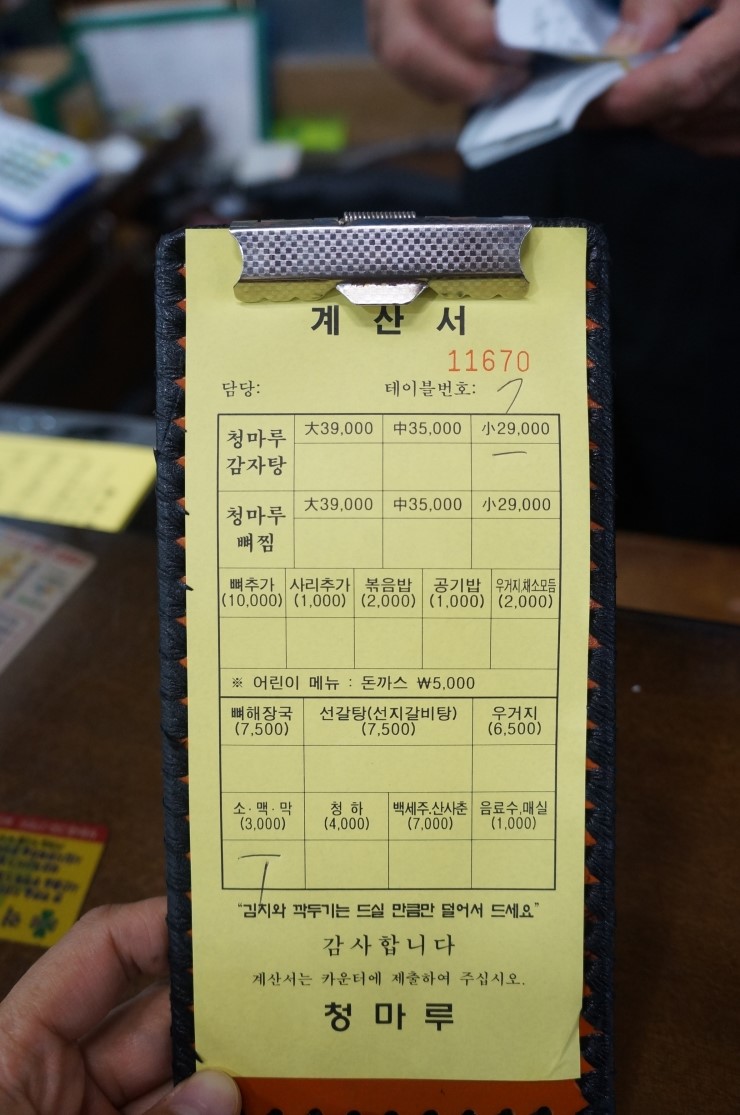 계 산 서
11670
담당: 테이블번호: 7
청마루 감자탕 大39,000 中35,000 小29,000
청마루 뼈찜 大39,000 中35,000 小29,000
뼈추가 사리추가 볶음밥 공기밥 우거지,채소모듬
(10,000) (1,000) (2,000) (1,000) (2,000)
※ 어린이 메뉴 : 돈까스 ₩5,000
뼈해장국 선갈탕(선지갈비탕) 우거지
(7,500) (7,500) (6,500)
소·맥·막 청 하 백세주.산사춘 음료수,매실
(3,000) (4,000) (7,000) (1,000)
“김치와 깍두기는 드실 만큼만 덜어서 드세요”
감사합니다
계산서는 카운터에 제출하여 주십시오.
청 마 루